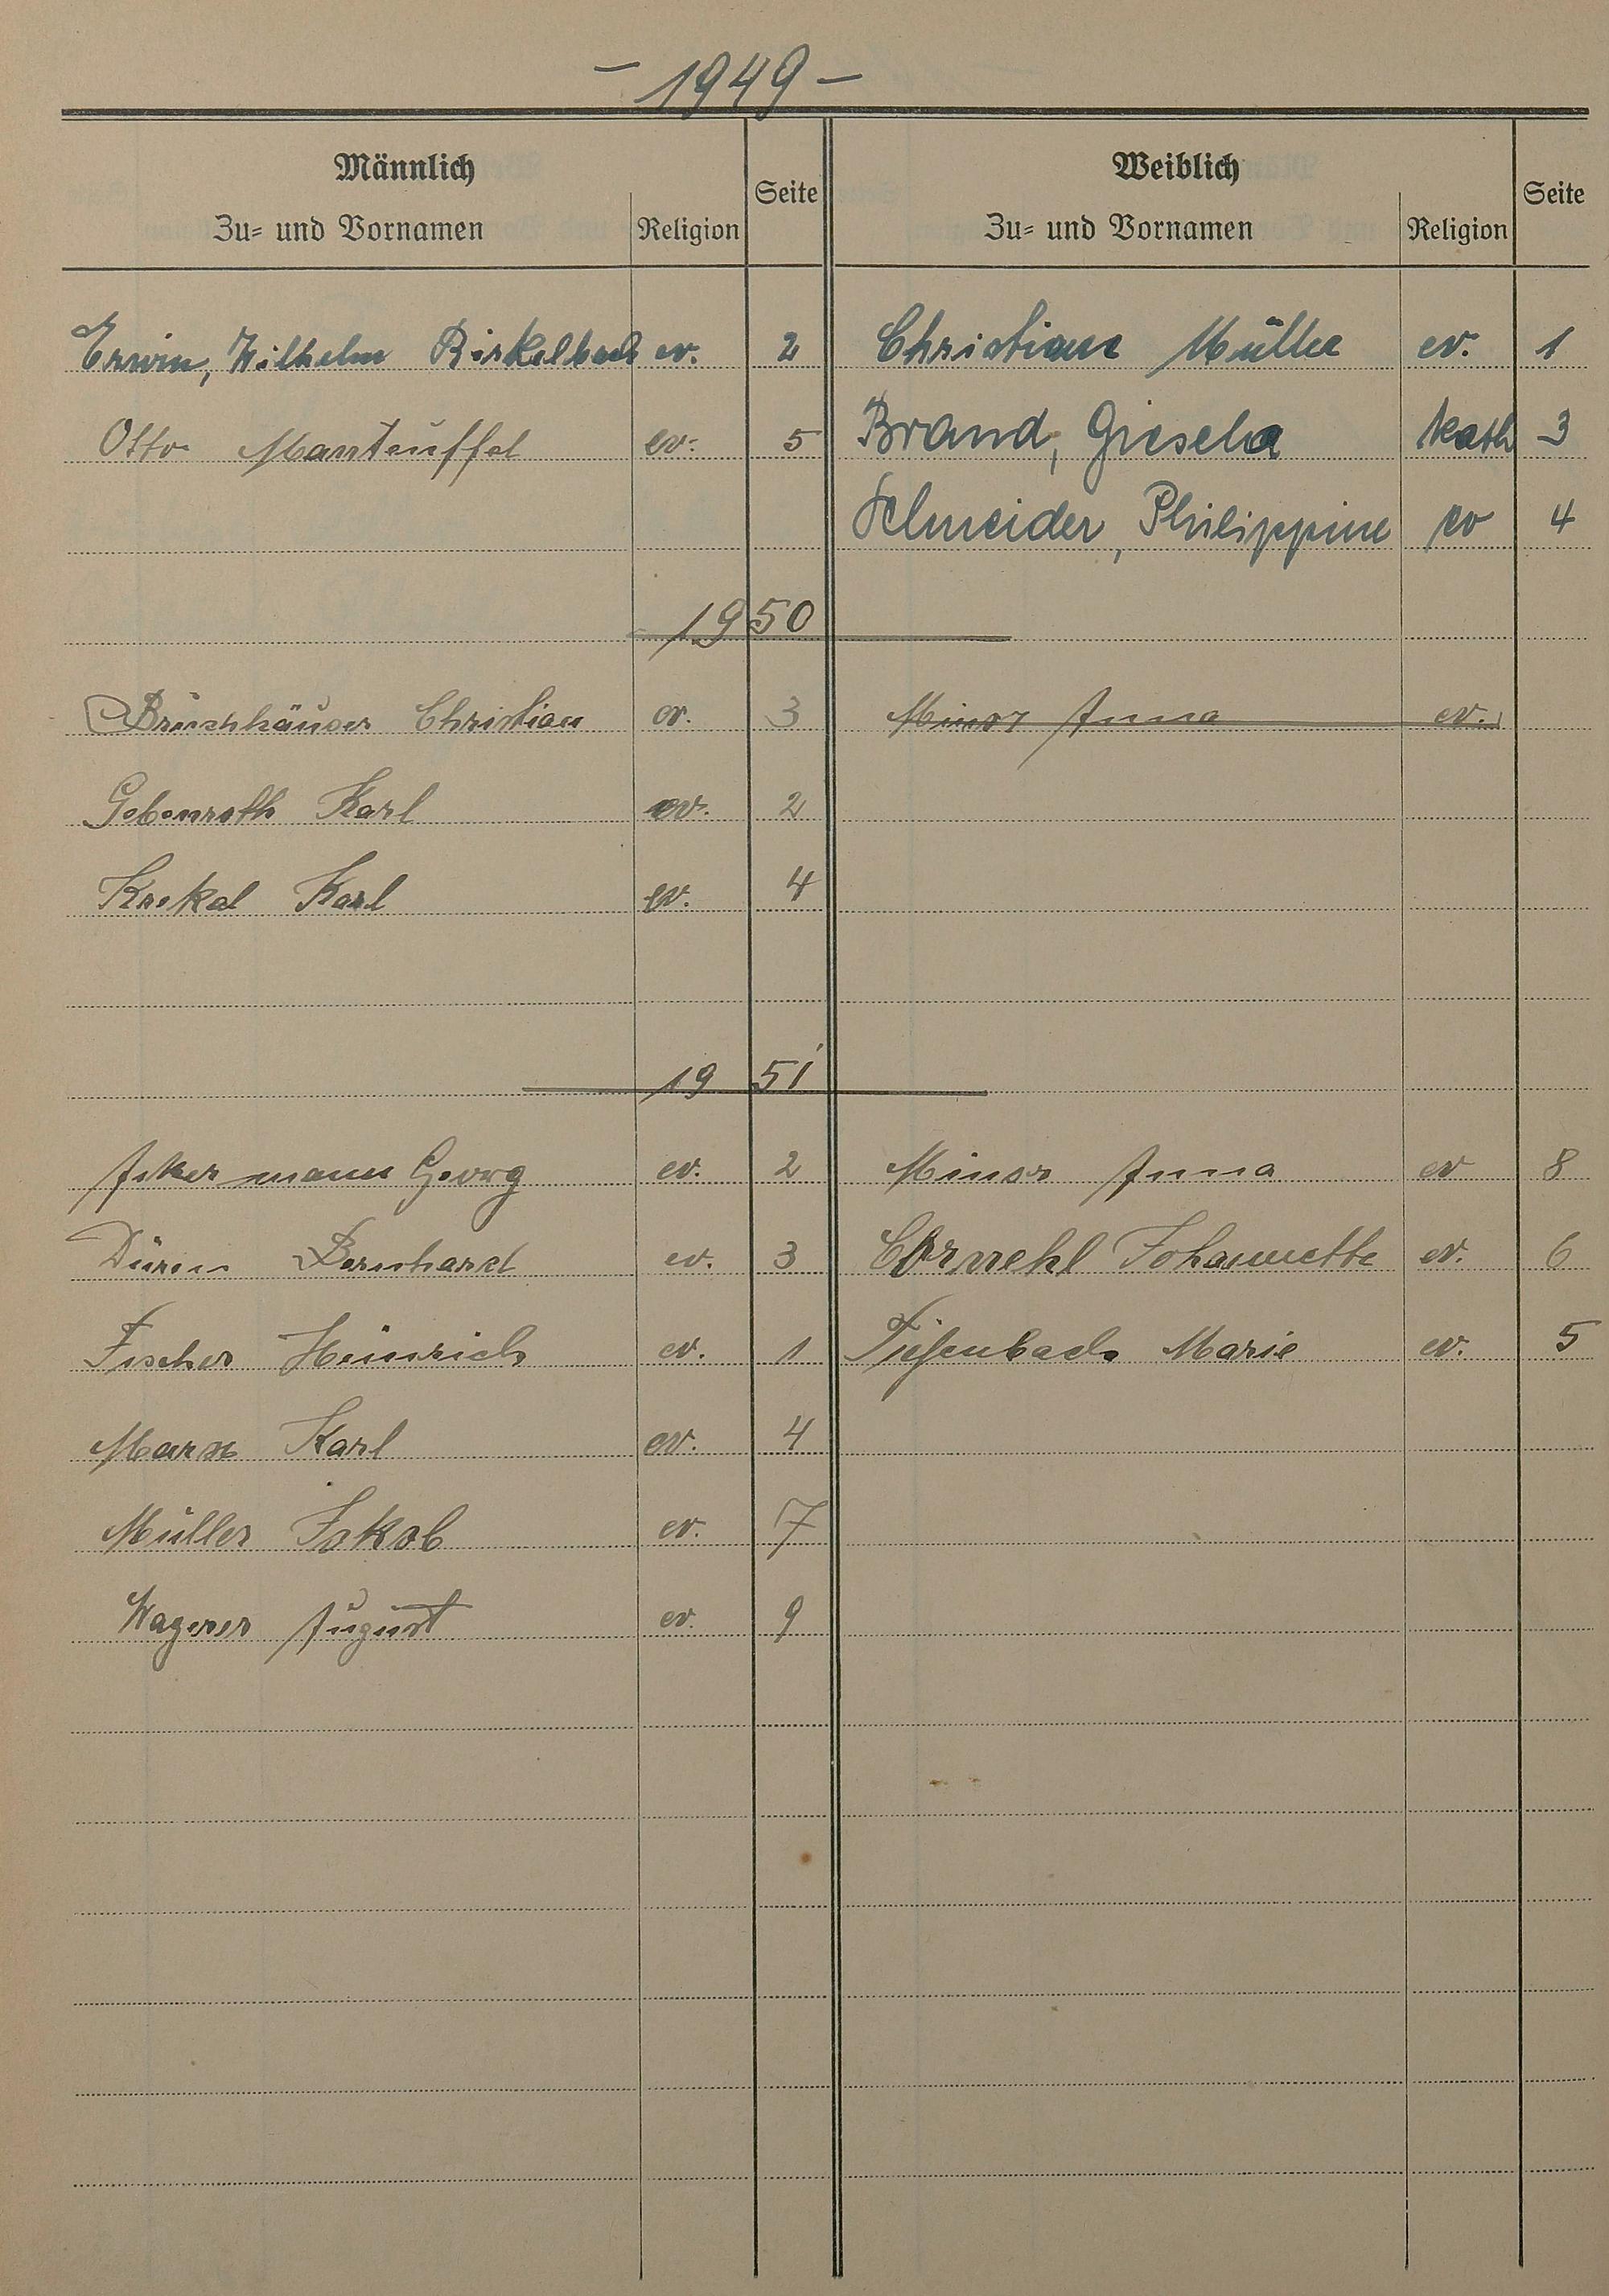 - 1949 -
Männlich
Zu- und Vornamen Religion Seite
Weiblich
Zu- und Vornamen Religion Seite
Erwin, Wilhelm Birkelbach ev. 2 Christiane Müller ev. 1
Otto Manteuffel ev. 5 Brand, Giesela kath 3
Schneider, Philippine ev 4
1950
Bruchhäuser Christian ev. 3 Minor Anna ev.
Gebenroth Karl ev. 2
Krekel Karl ev. 4
1951
Ackermann Georg ev. 2 Minor Anna ev 8
Düren Bernhard ev. 3 Cornehl Johannette ev. 6
Fischer Heinrich ev. 1 Tiefenbach Marie ev. 5
Marx Karl ev. 4
Müller Jakob ev. 7
Wagener August ev. 9